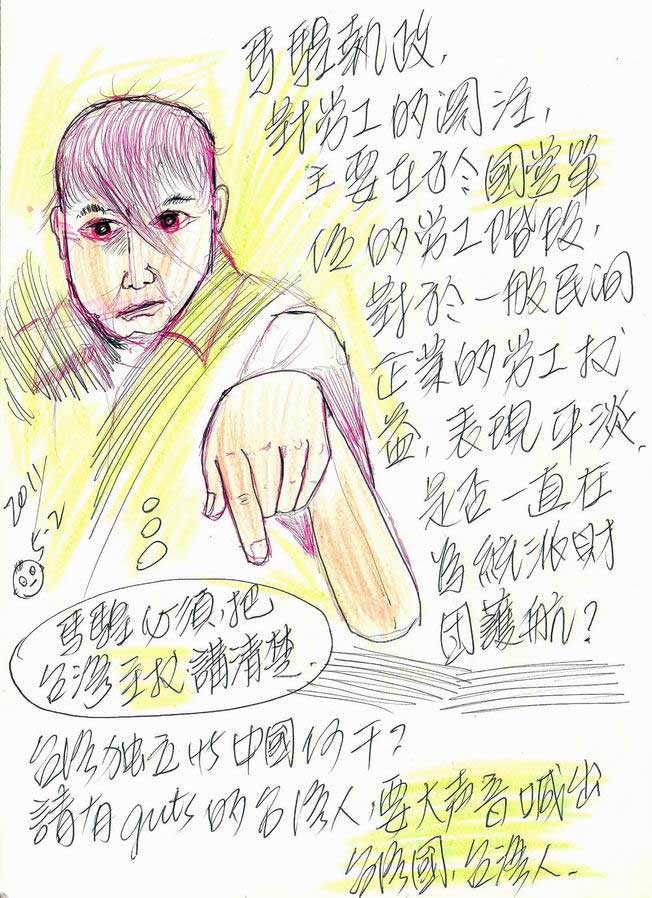 馬騜執政，
對勞工的関注，
主要在於國营單
位的勞工階段，
對於一般民间
企業的勞工权
益，表現平淡，
是否一直在
為統派財
团護航？
2011
5.2
馬騜必須，把
台湾主权講清楚．
台湾独立 中國何干？
請有guts的台湾人，要大声音喊出
台湾國，台湾人．